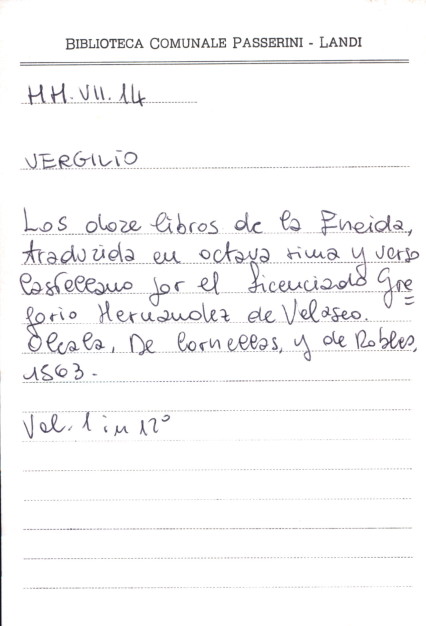 BIBLIOTECA COMUNALE PASSERINI - LANDI
HH. VII. 14
VERGILIO
Los doze libros de la Eneida,
traduzida en octava rima y verso
Castellano por el licenciado Gre=
gorio Hernandez de Velasco.
Alcala, De Cornellas, y de Robles,
1563.
Vol. 1 in 12°